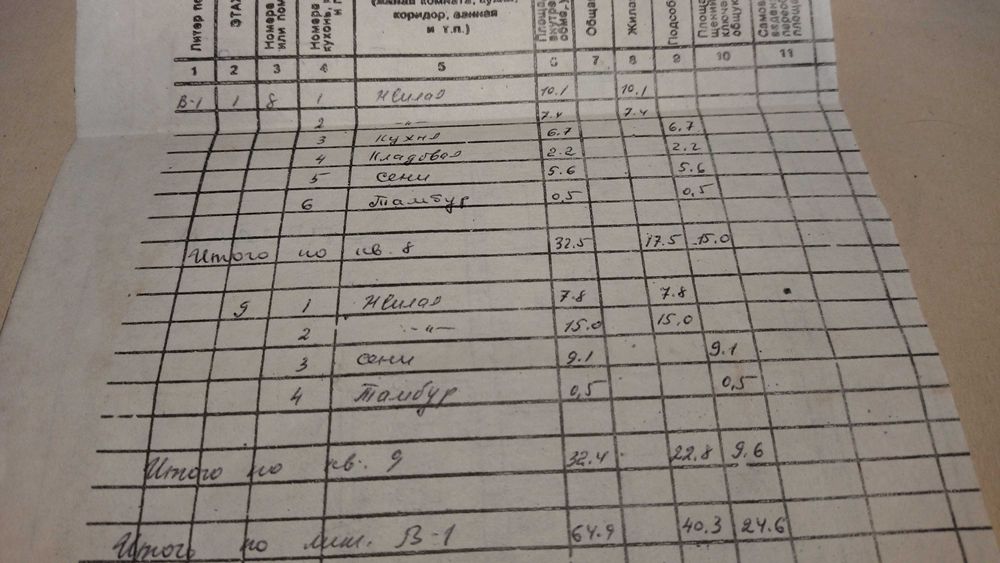 (жилая комната, кухня,
коридор, ванная
и т.п.)
Литер
ЭТАЖ
Номера
или
Номера
кухонь,
Площадь
внутр.
обме
Обща
Жила
Подсоб
Площа
щений
ключа
общую
Самово
веден
перео
площ
1 2 3 4 5 6 7 8 9 10 11
В-1 1 8 1 Жилая 10.1 10.1
2 -„- 7.4 7.4
3 кухня 6.7 6.7
4 кладовая 2.2 2.2
5 сени 5.6 5.6
6 Тамбур 0,5 0,5
Итого по кв. 8 32.5 17.5 15.0
9 1 Жилая 7.8 7.8
2 -„- 15.0 15.0
3 сени 9.1 9.1
4 Тамбур 0,5 0,5
Итого по кв. 9 32.4 22.8 9.6
Итого по лит. В-1 64.9 40.3 24.6